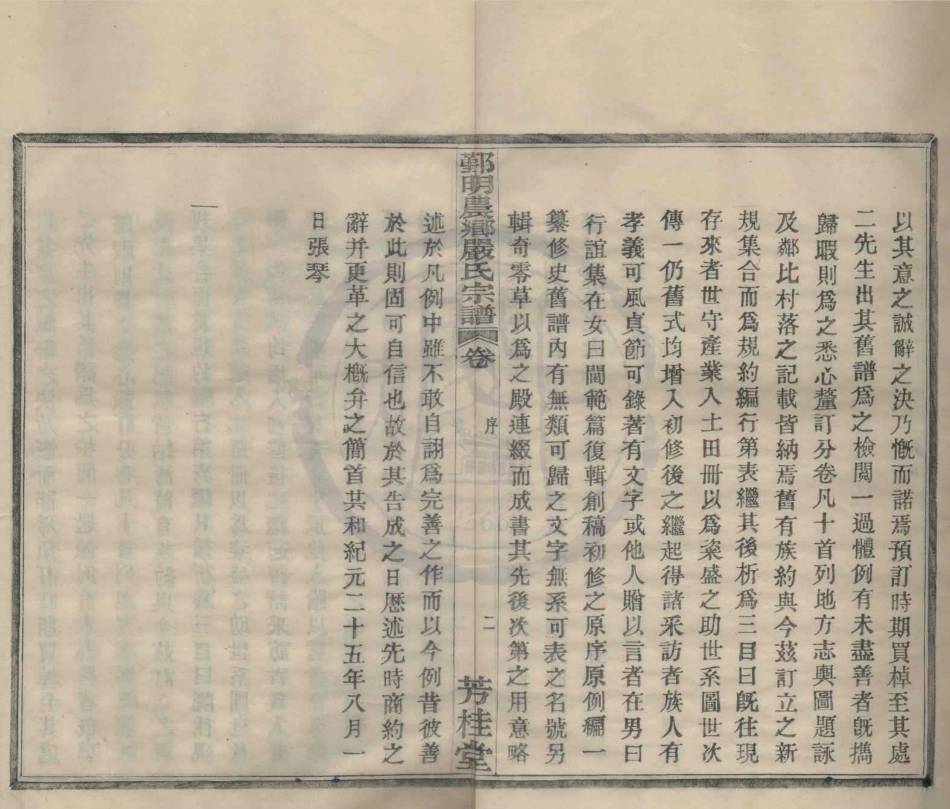 以其意之誠辭之決乃慨而諾焉預訂時期買棹至其處
二先生出其舊譜爲之檢閱一過體例有未盡善者旣撝
歸暇則爲之悉心釐訂分卷凡十首列地方志輿圖題詠
及鄰比村落之記載皆納焉舊有族約與今茲訂立之新
規集合而爲規約編行第表繼其後析爲三目曰旣往現
存來者世守產業入土田冊以爲粢盛之助世系圖世次
傳一仍舊式均增入初修後之繼起得諸采訪者族人有
孝義可風貞節可錄著有文字或他人贈以言者在男曰
行誼集在女曰閫範篇復輯創稿初修之原序原例編一
纂修史舊譜內有無類可歸之文字無系可表之名號另
輯奇零草以爲之殿連綴而成書其先後次第之用意略
鄞明農鄉嚴氏宗譜 卷 序 二 芳桂堂
述於凡例中雖不敢自詡爲完善之作而以今例昔彼善
於此則固可自信也故於其告成之日歷述先時商約之
辭并更革之大概弁之簡首其共和紀元二十五年八月一
日張琴